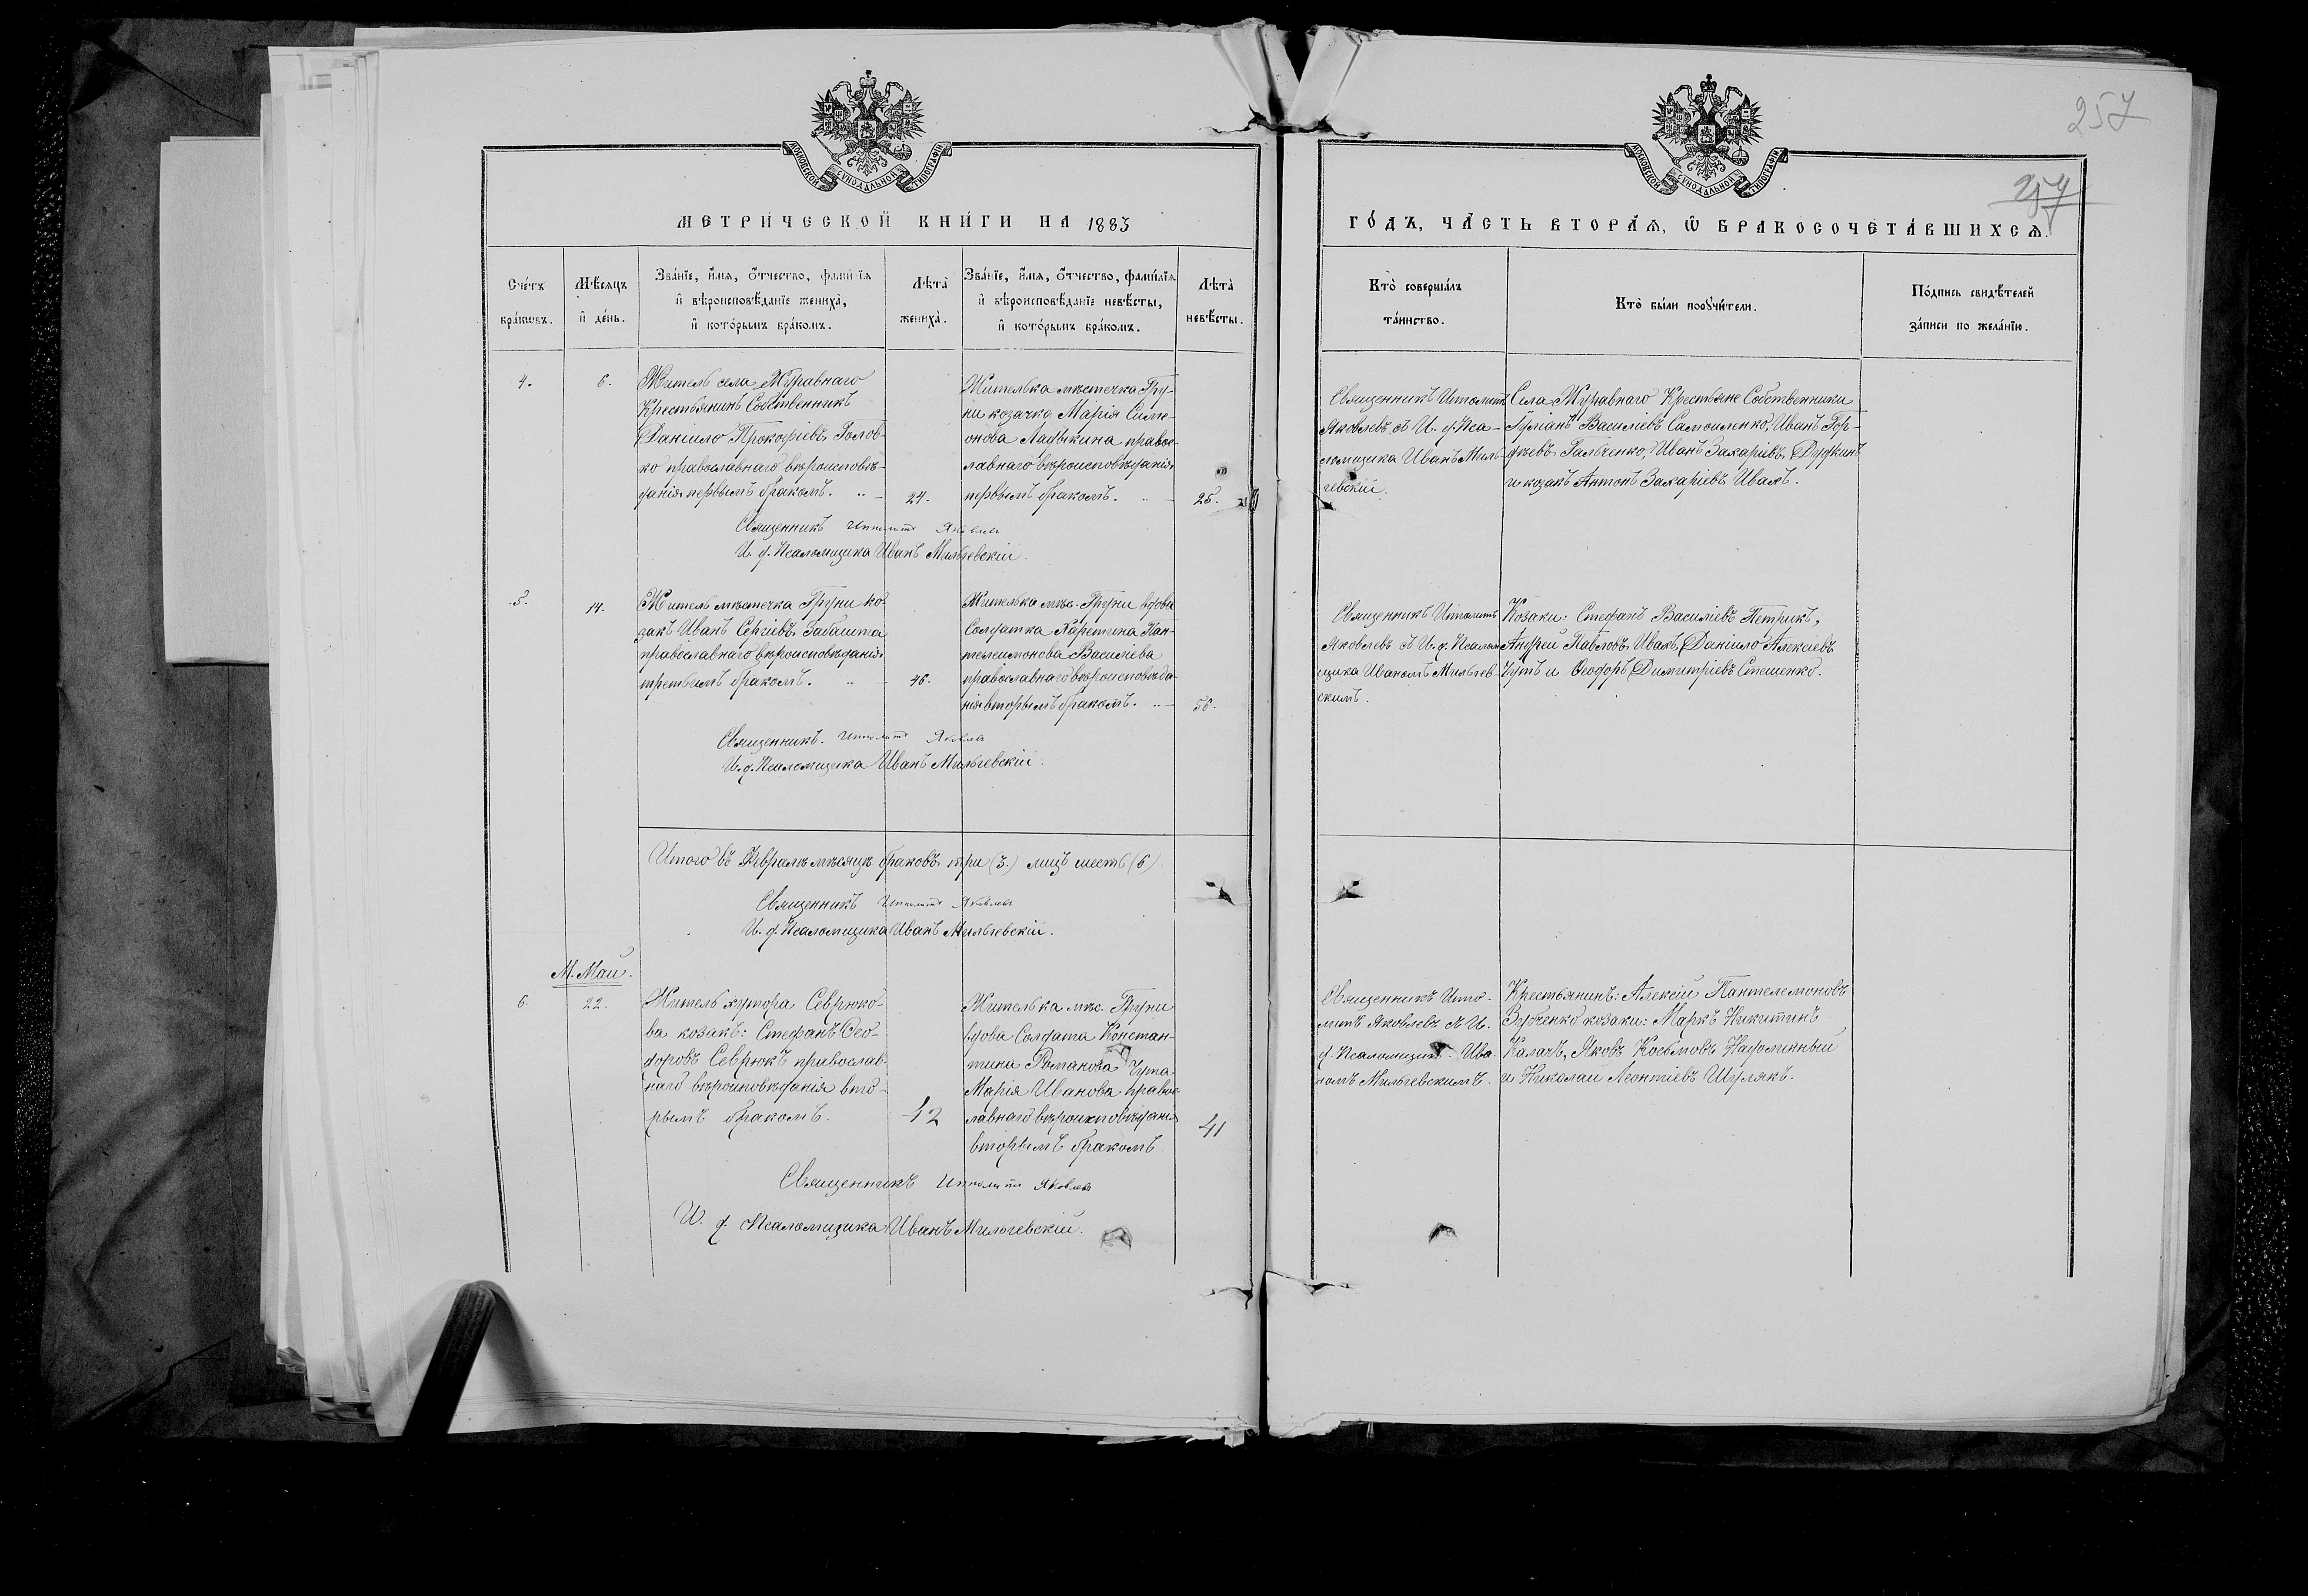 257
257
МОСКОВСКОЙ СѴНОДАЛЬНОЙ ТИПОГРАФІИ
МОСКОВСКОЙ СѴНОДАЛЬНОЙ ТИПОГРАФІИ
МЕТРИЧЕСКОЙ КНИГИ НА 1883
ГОДЪ, ЧАСТЬ ВТОРАЯ, Ѡ БРАКОСОЧЕТАВШИХСЯ.
Счетъ
браковъ.
Мѣсяцъ
и день.
Званіе, имя, отчество, фамилія
и вѣроисповѣданіе жениха,
и которымъ бракомъ.
Лѣта
жениха.
Званіе, имя, отчество, фамилія
и вѣроисповѣданіе невѣсты,
и которымъ бракомъ.
Лѣта
невѣсты.
Кто совершалъ
таинство.
Кто были поручители.
Подпись свидѣтелей
записи по желанію.
4.
6.
Житель села Журавнаго
Крестьянинъ Собственникъ
Даніилъ Прокофіевъ Голов-
ко православнаго вѣроисповѣ-
данія первымъ бракомъ.
24.
Жителька мѣстечка Гру-
ни козачка Марія Симе-
онова Ладыкина правос-
лавнаго вѣроисповѣданія
первымъ бракомъ.
25.
Священникъ Иполитъ
Яковлевъ съ И. д. Пса-
ломщика Иванъ Миль-
чевскій.
Села Журавнаго Крестьяне Собственники
Василіевъ Самойленко, Иванъ Гор-
дѣевъ Гальченко, Иванъ Захаріевъ Дудкинъ
и козакъ Антонъ Захаріевъ Иваль.
Священникъ Ипполитъ Яковлевъ
И. д. Псаломщика Иванъ Мильчевскій.
5.
14.
Житель мѣстечка Груни ко-
закъ Иванъ Сергіевъ Забашта
православнаго вѣроисповѣданія
третьимъ бракомъ.
48.
Жителька мѣс. Груни вдова
Солдатка Харетина Пан-
телеимонова Василіева
православнаго вѣроисповѣда-
нія вторымъ бракомъ.
50.
Священникъ Иполитъ
Яковлевъ съ И. д. Псалом-
щика Иваномъ Мильчев-
скимъ.
Козаки: Стефанъ Василіевъ Петрикъ,
Андрей Павловъ Иваль, Даніилъ Алексіевъ
Чутъ и Ѳеодоръ Димитріевъ Стешенко.
Священникъ. Ипполитъ Яковлевъ
И. д. Псаломщика Иванъ Мильчевскій.
Итого въ Февралѣ мѣсяцѣ браковъ три (3.) лицъ шесть (6)
Священникъ Ипполитъ Яковлевъ
И. д. Псаломщика Иванъ Мильчевскій.
М. Май.
6.
22.
Житель хутора Севрюко-
ва козакъ: Стефанъ Ѳео-
доровъ Севрюкъ православ-
наго вѣроисповѣданія вто-
рымъ бракомъ.
42
Жителька мѣс. Груни
вдова Солдата Констан-
тина Романова Чута
Марія Иванова правос-
лавнаго вѣроисповѣданія
вторымъ бракомъ
41
Священникъ Ипо-
литъ Яковлевъ съ И.
д. Псаломщика Ива-
номъ Мильчевскимъ.
Крестьянинъ: Алексій Пантелемоновъ
Зубченко козаки: Маркъ Никитинъ
Калачъ, Яковъ Косьмовъ
и Николай Леонтіевъ Шулякъ.
Священникъ Ипполитъ Яковлевъ
И. д. Псаломщика Иванъ Мильчевскій.